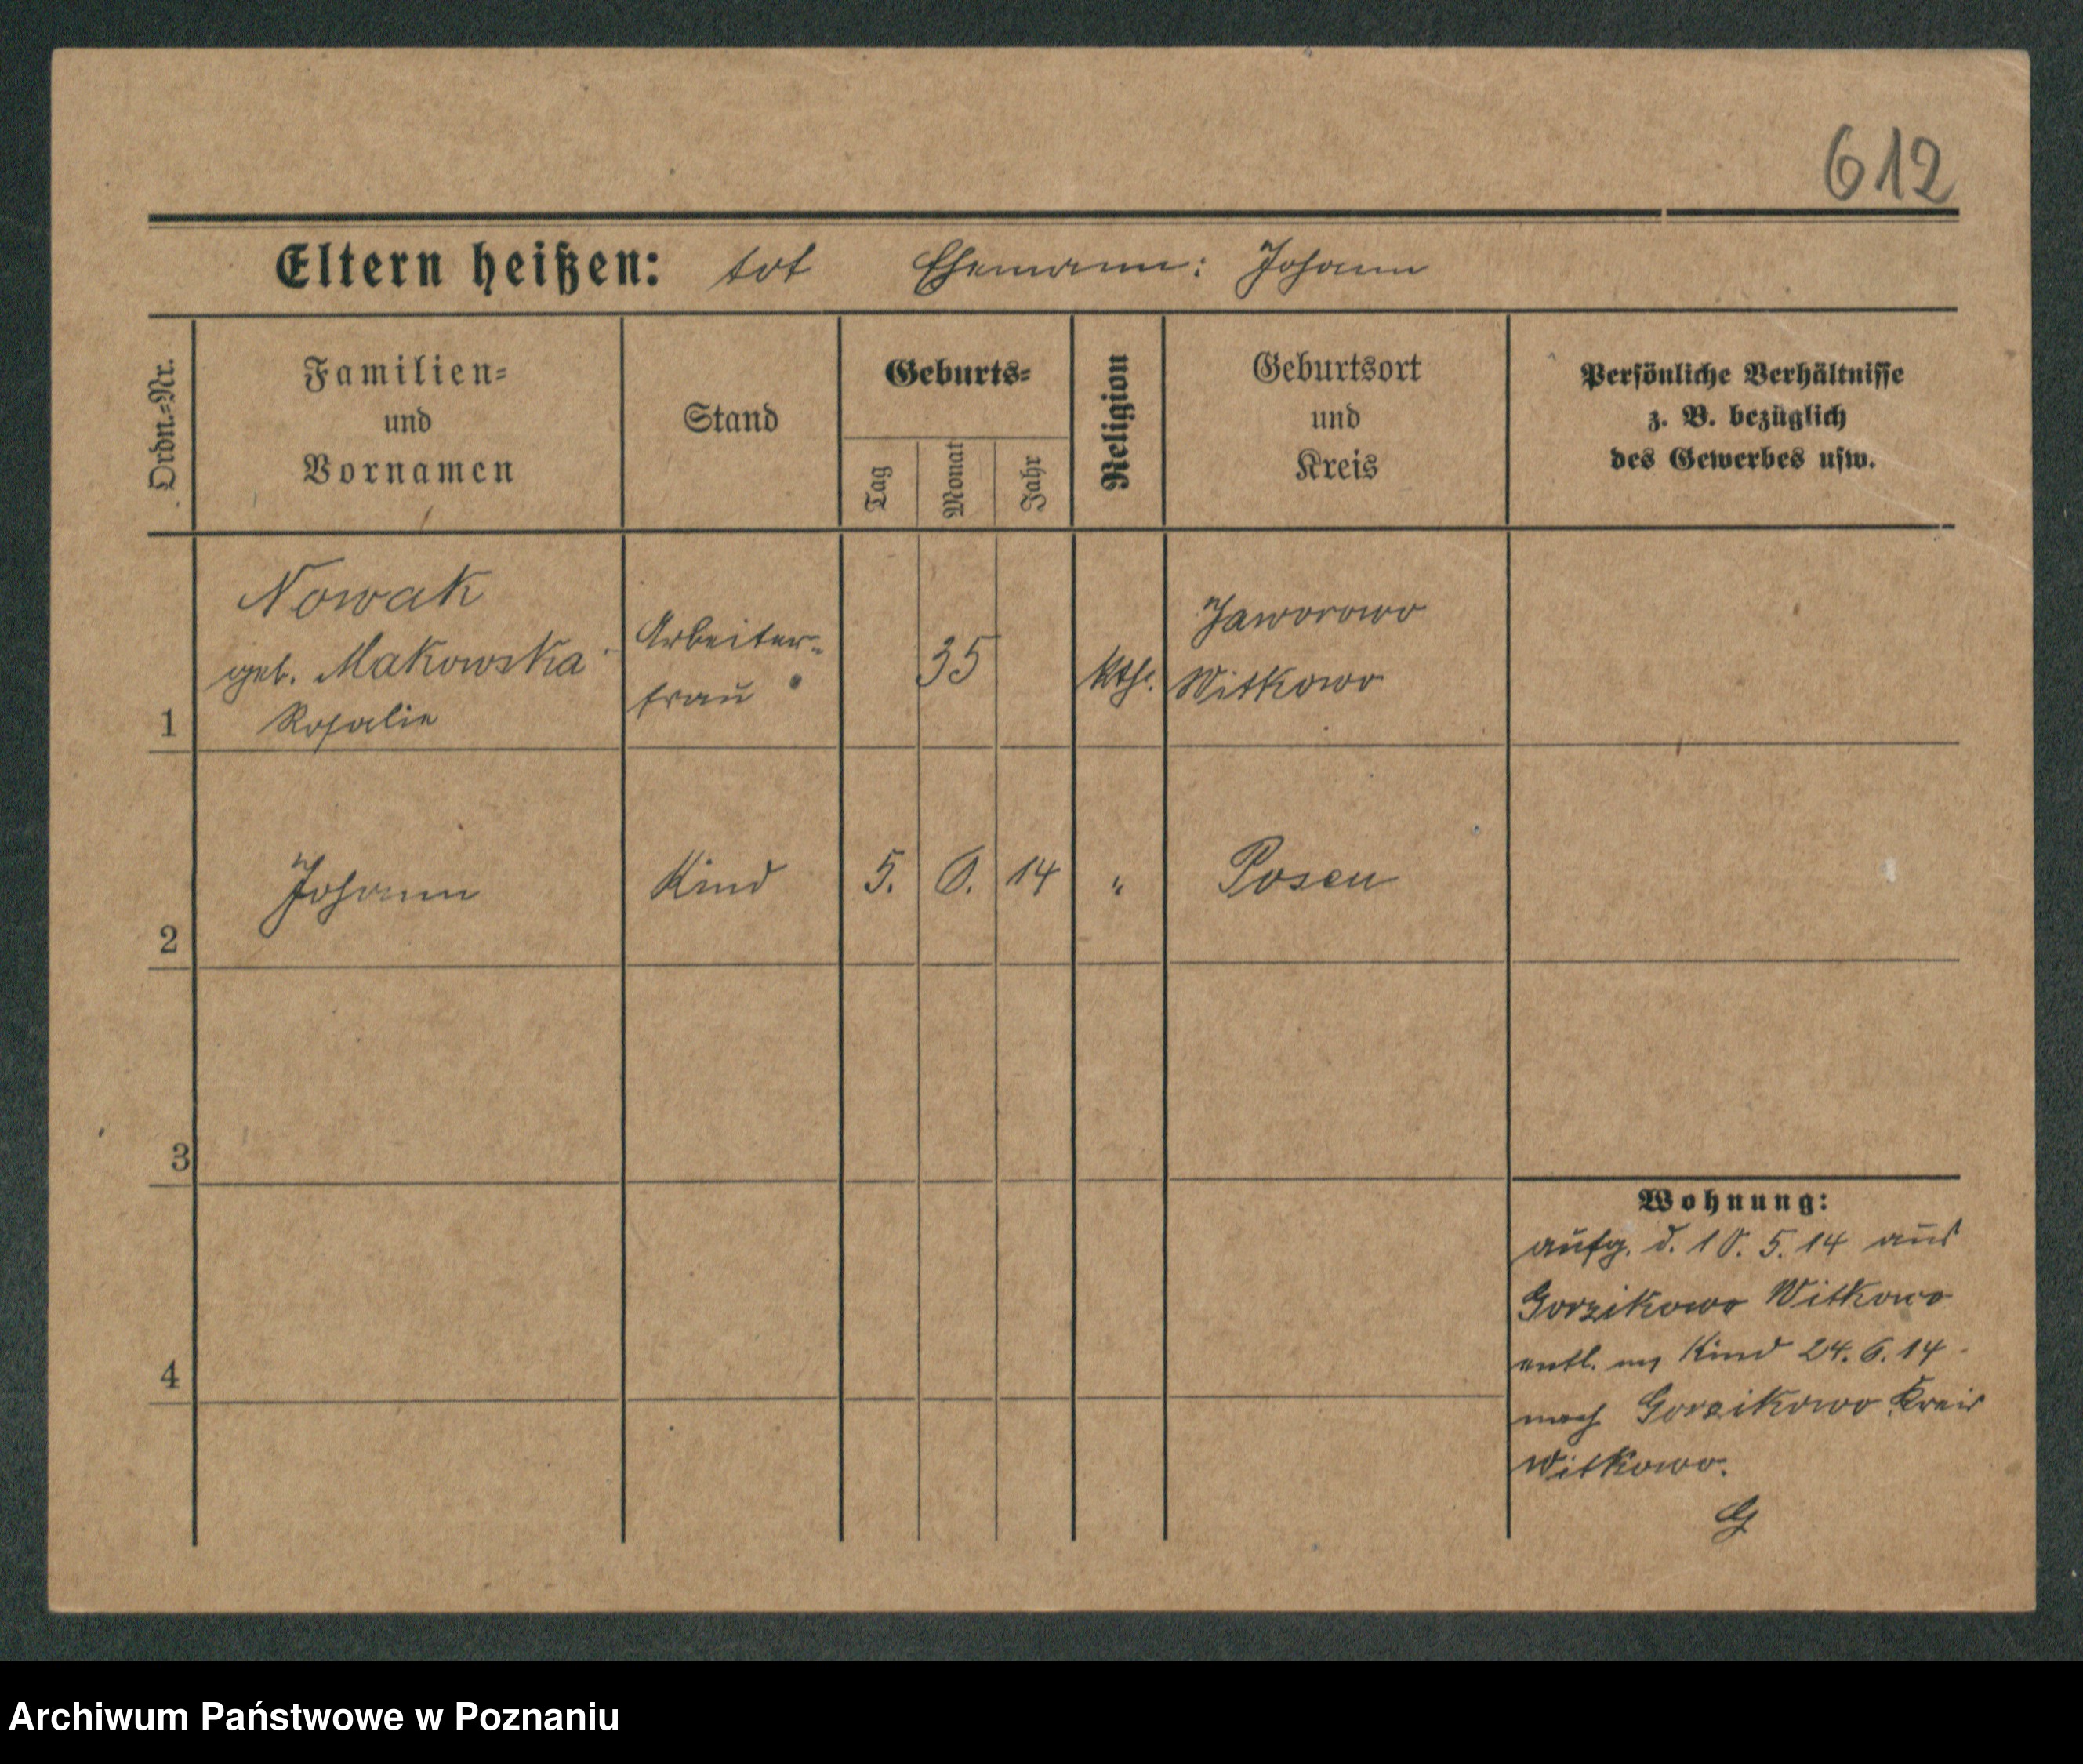 612
Eltern heißen: tot Ehemann: Johann
Ordn.=Nr.
Familien=
und
Vornamen
Stand
Geburts=
Tag
Monat
Jahr
Religion
Geburtsort
und
Kreis
Persönliche Verhältnisse
z. B. bezüglich
des Gewerbes usw.
1
Nowak
geb. Makowska
Rosalie
Arbeiter=
frau
35
kth.
Jaworowo
Witkowo
2
Johann
Kind
5.
6.
14
"
Posen
3
4
Wohnung:
aufg. d. 10. 5. 14 aus
Gorzikowo Witkowo
entl. m Kind 24. 6. 14
nach Gorzikowo Kreis
Witkowo.
G
Archiwum Państwowe w Poznaniu